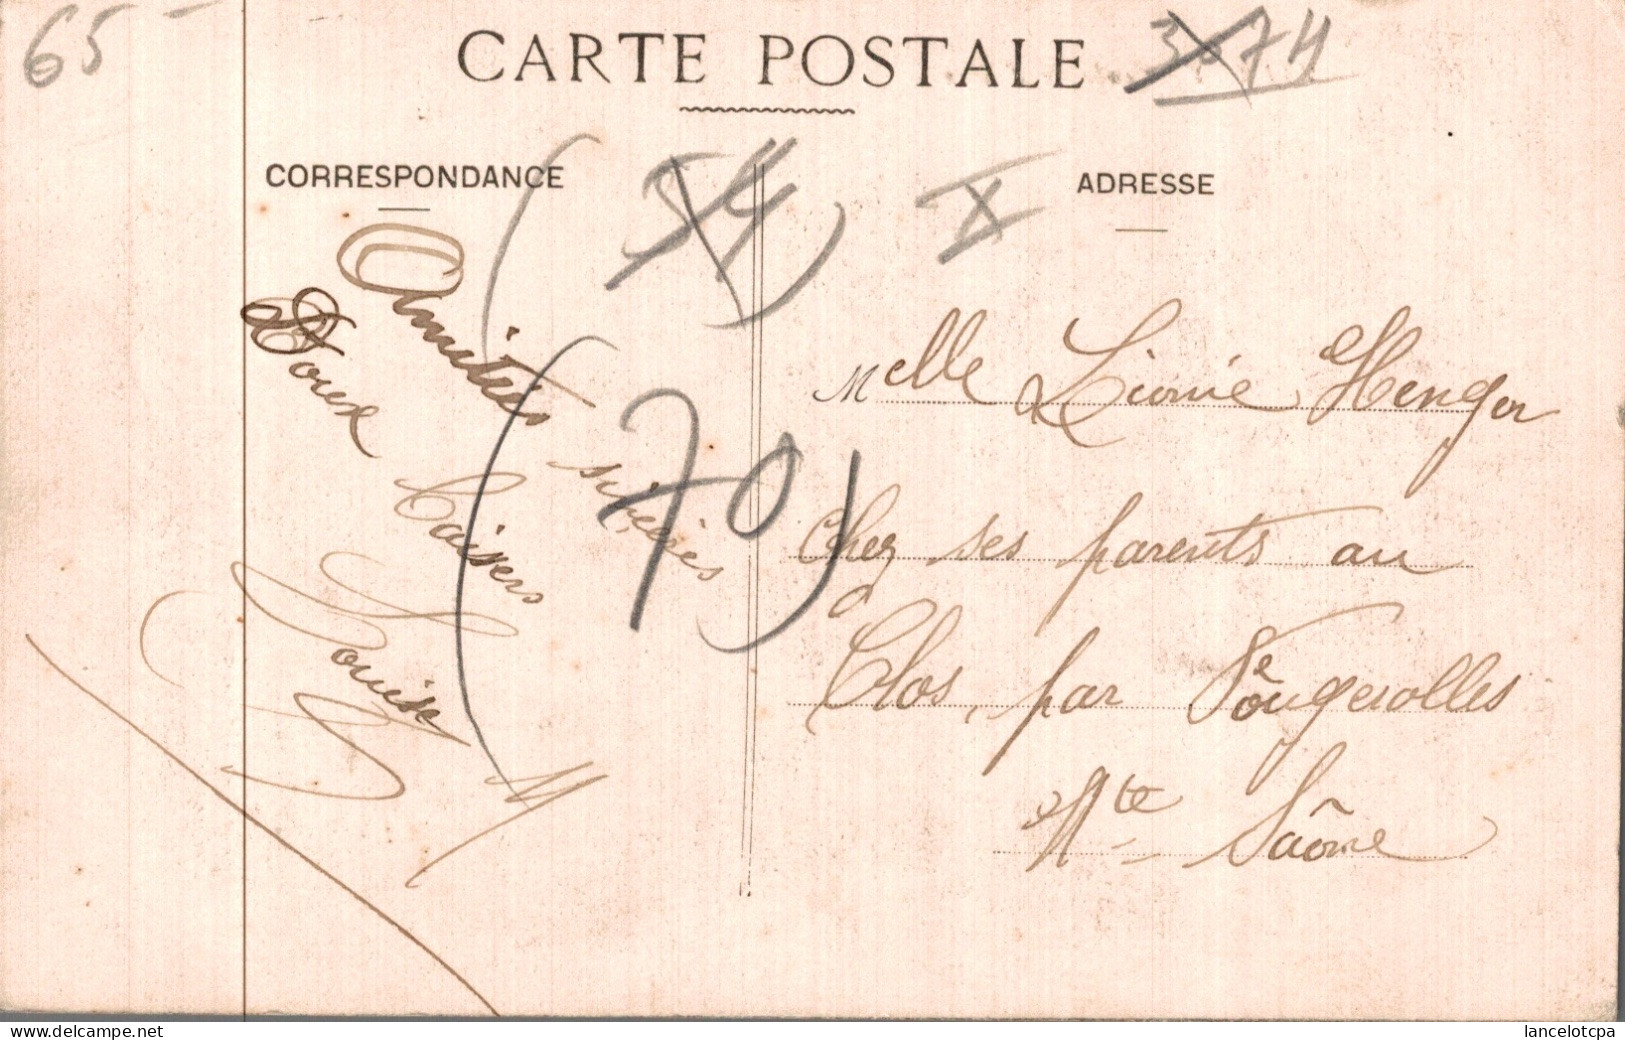 65-
CARTE POSTALE
3074
CORRESPONDANCE
ADRESSE
54
X
(70)
Amitiés sincères
Doux baisers
Louise
Melle Léonie Henger
Chez ses parents au
Clos, par Fougerolles
Hte Saône
delcampe.net
lancelotcpa